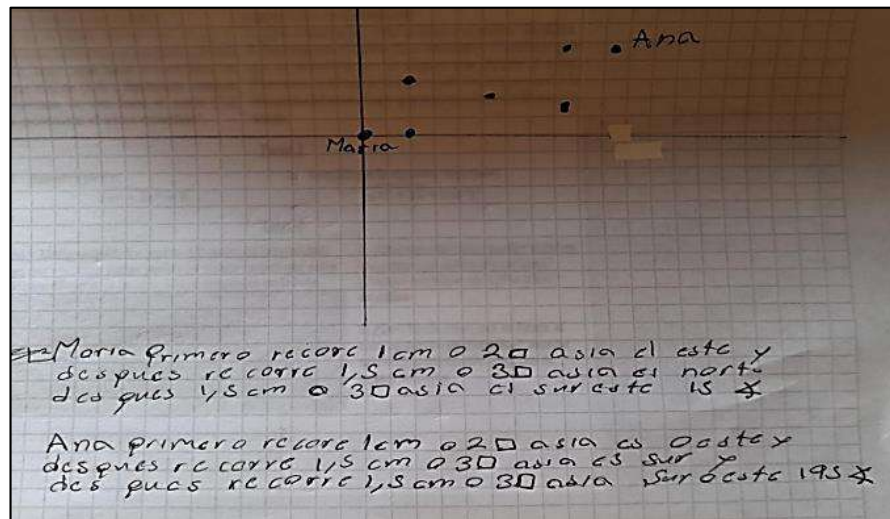 Ana
Maria
Maria primero recorc 1cm o 2□ asia el este y
despues recorre 1,5 cm o 3□ asia el norte
des pues 1,5cm o 3□ asia el sur este 15
Ana primero recorc 1cm o 2□ asia es oeste y
despues recorre 1,5 cm o 3□ asia es sur y
des pues recorre 1,5cm o 3□ asia sur oeste 195